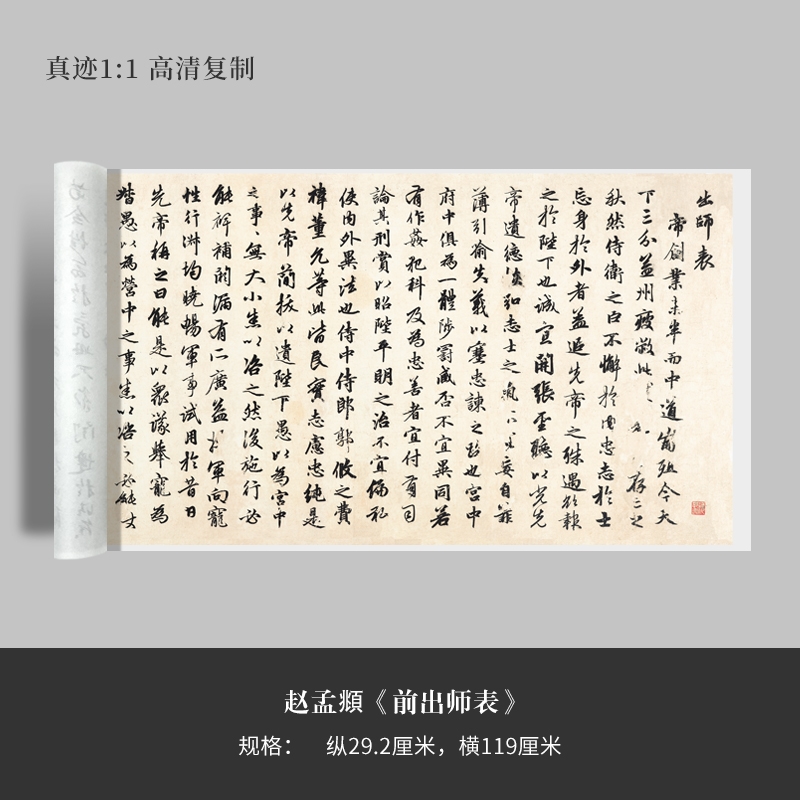 真迹1:1 高清复制
出師表
帝創業未半而中道崩殂今天
下三分益州疲敝此存亡之
秋然侍衛之臣不懈於內忠志於士
忘身於外者蓋追先帝之殊遇欲報
之於陛下也誠宜開張聖聽以光先
帝遺德恢弘志士之氣不宜妄自菲
薄引喻失義以塞忠諫之路也宮中
府中俱為一體陟罰臧否不宜異同若
有作姦犯科及為忠善者宜付有司
論其刑賞以昭陛平明之治不宜偏私
使內外異法也侍中侍郎郭攸之費
禕董允等此皆良實志慮忠純是
以先帝簡拔以遺陛下愚以為宮中
之事、無大小悉以咨之然後施行必
能裨補闕漏有所廣益將軍向寵
性行淑均曉暢軍事試用於昔日
先帝稱之曰能是以眾議舉寵為
督愚以為營中之事悉以咨之必能
赵孟頫《前出师表》
规格： 纵29.2厘米，横119厘米